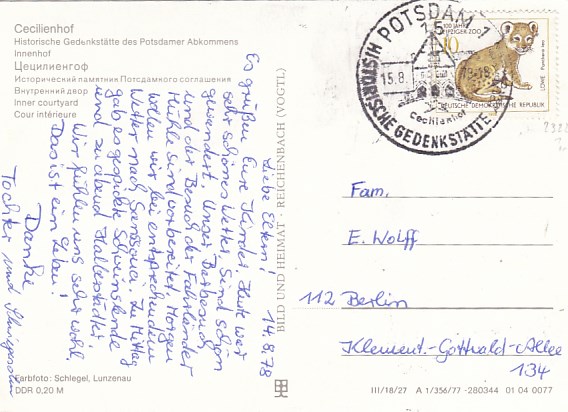 Cecilienhof
Historische Gedenkstätte des Potsdamer Abkommens
Innenhof
Цецилиенгоф
Исторический памятник Потсдамского соглашения
Внутренний двор
Inner courtyard
Cour intérieure
14.8.78
Liebe Eltern!
Es grüßen Eure Kinder. Heute war
sehr schönes Wetter. Sind schön
gewandert. Unser Barbesuch
und der Besuch der Fahrländer
Mühle sind vorbereitet. Morgen
wollen wir bei entsprechendem
Wetter nach Sanssouci. Zu Mittag
gab es gespickte Schweinslende
und zu abend Halberstädter.
Wir fühlen uns sehr wohl.
Das ist ein Leben!
Danke
Tochter und Schwiegersohn
BILD UND HEIMAT · REICHENBACH (VOGTL)
POTSDAM 1
15
15.8.
Cecilienhof
HISTORISCHE GEDENKSTÄTTE
100 JAHRE
LEIPZIGER ZOO
10
LÖWE Panthera leo
DEUTSCHE DEMOKRATISCHE REPUBLIK
Fam.
E. Wolff
112 Berlin
Klement-Gottwald-Allee
134
Farbfoto: Schlegel, Lunzenau
DDR 0,20 M
III/18/27 A 1/356/77 -280344 01 04 0077